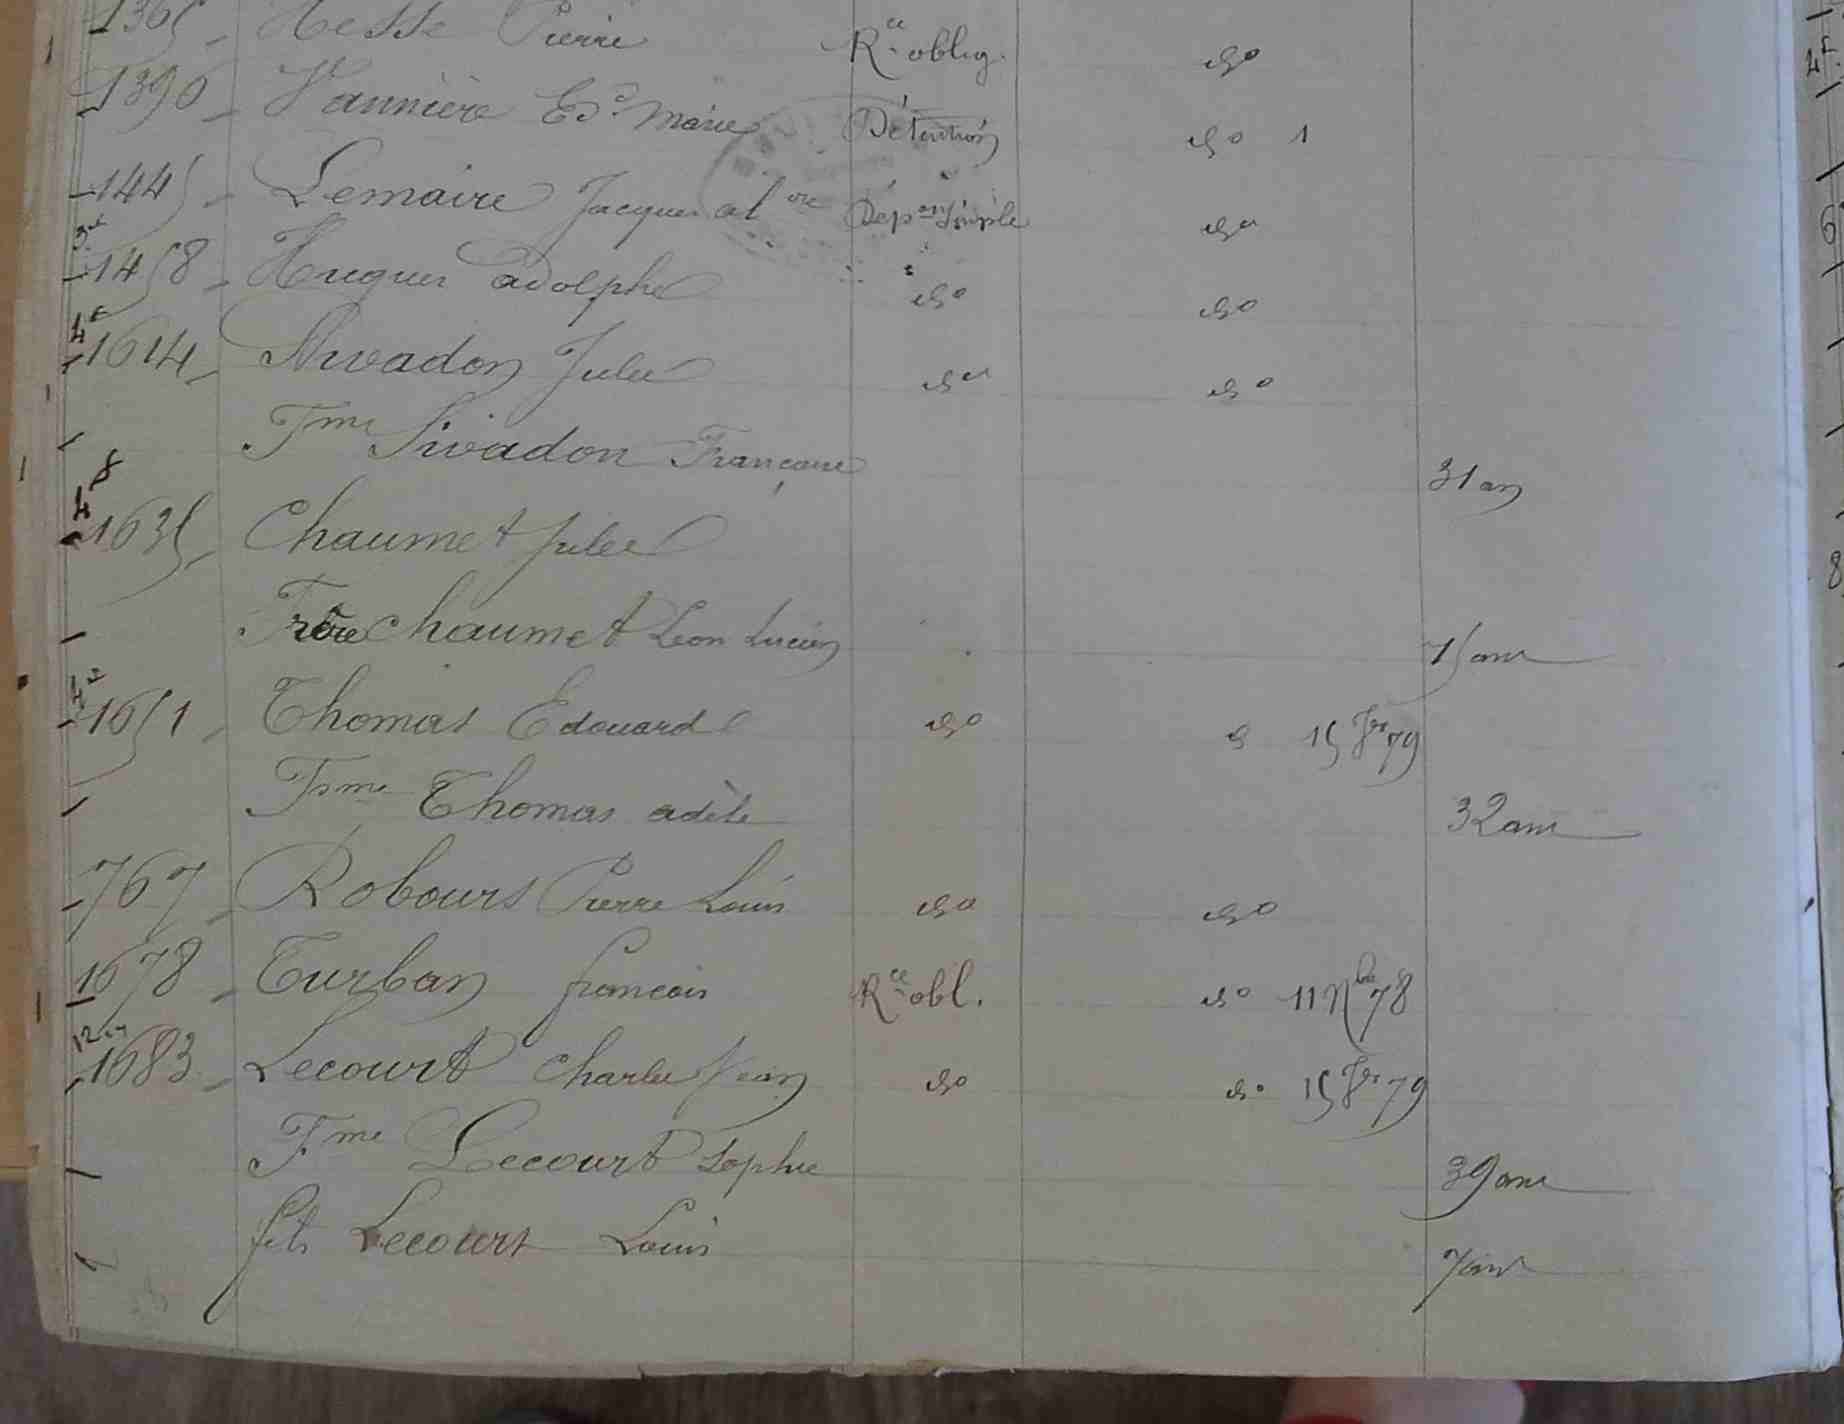 1365 - Hesse Pierre Rce oblig. do
1390 - Vannière Ed. Marie Détention do 1
1445 - Lemaire Jacques alre Dépon Simple do
1458 - Hugues Adolphe do do
1614 - Sivadon Jules do do
Fme Sivadon Françoise 31 ans
1635 - Chaumet Jules
Frère Chaumet Leon Lucien 75 ans
1651 - Thomas Edouard do d 15 Jer 79
Fme Thomas adèle 32 ans
767 - Robours Pierre Louis do do
1678 - Turban françois Rce obl. do 11 Nbre 78
1683 - Lecourt Charles Jean do do 15 Jer 79
Fme Lecourt Sophie 39 ans
fils Lecourt Louis 7 ans